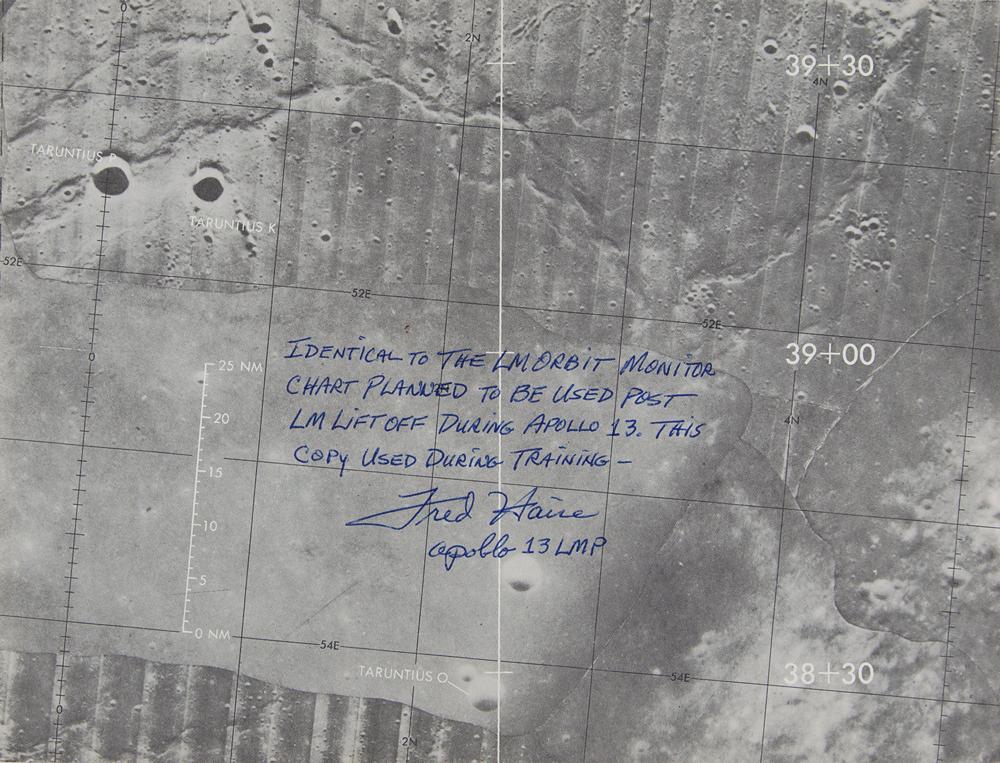 0
2N
39+30
4N
TARUNTIUS P
TARUNTIUS K
52E
52E
52E
0
39+00
25 NM
IDENTICAL TO THE LM ORBIT MONITOR
CHART PLANNED TO BE USED POST
20
LM LIFTOFF DURING APOLLO 13. THIS
4N
COPY USED DURING TRAINING –
15
Fred Haise
10
Apollo 13 LMP
5
0 NM
54E
TARUNTIUS O
54E
38+30
0
2N